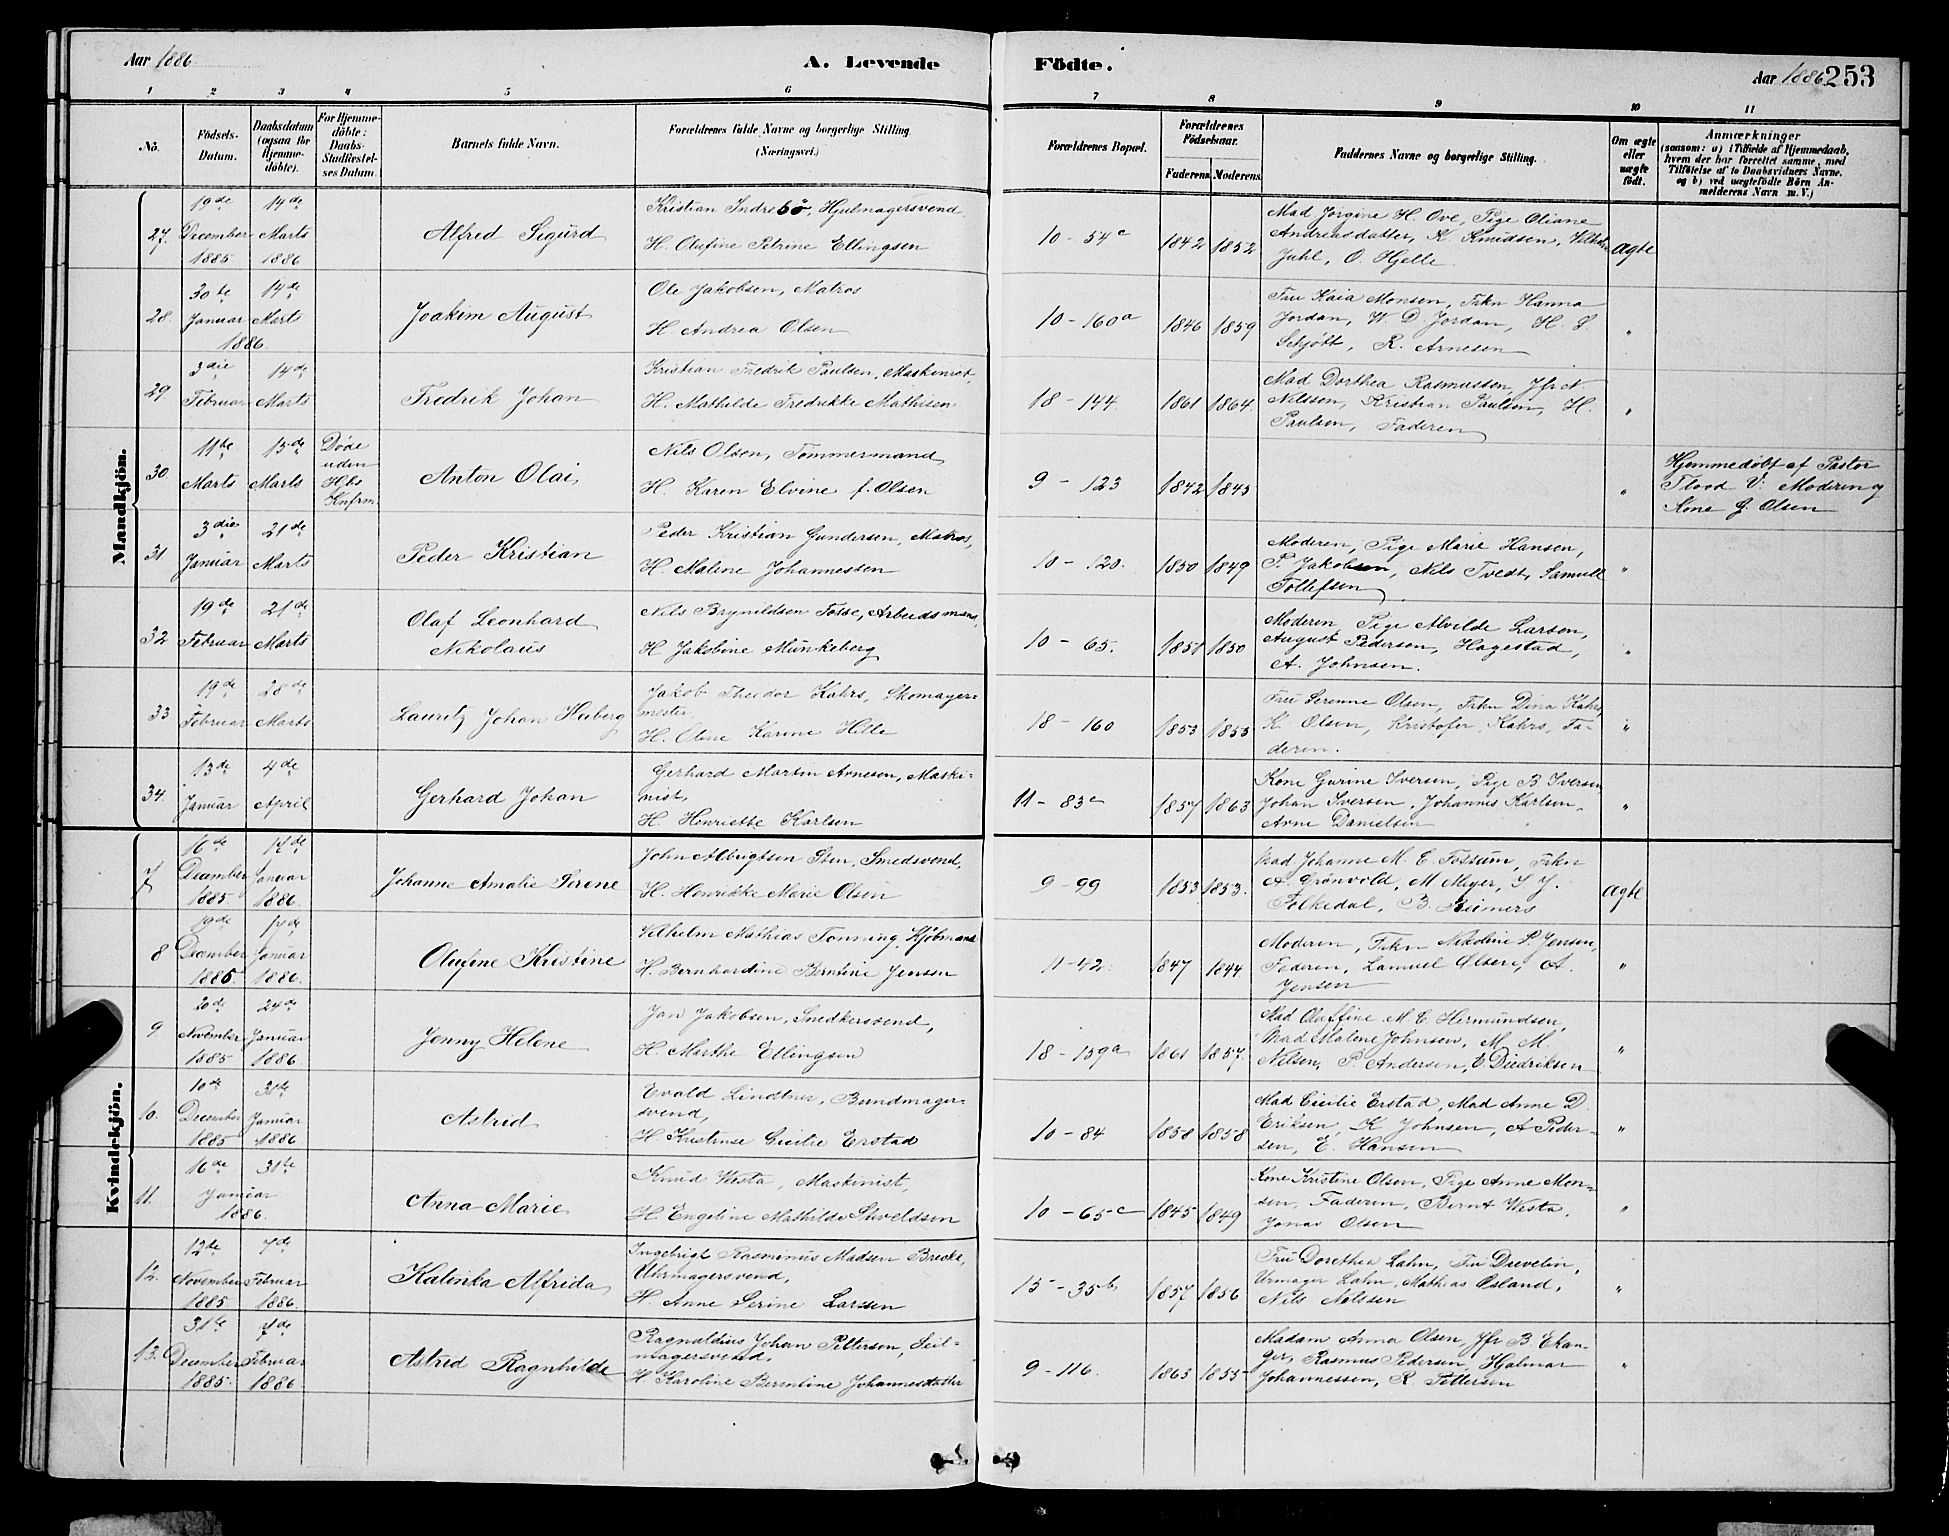 Aar 1886
A. Levende Födte.
Aar 1886 253
1 2 3 4 5 6 7 8 9 10 11
No.
Födsels-Datum.
Daabsdatum (ogsaa for Hjemme-döbte).
For Hjemme-döbte: Daabs-Stadfæstel-ses Datum.
Barnets fulde Navn.
Forældrenes fulde Navne og borgerlige Stilling. (Næringsvei.)
Forældrenes Bopæl.
Forældrenes Födselsaar.
Faderens Moderens
Faddernes Navne og borgerlige Stilling.
Om ægte eller uægte födt.
Anmærkninger
(saasom: a) i Tilfælde af Hjemmedaab, hvem der har forrettet samme, med Tilföielse af to Daabsvidners Navne, og b) ved uægtefödte Börn An-melderens Navn m. V.)
Mandkjön.
27. 19de December 1885 14de Marts 1886
Alfred Sigurd
Kristian Indrebö, Hjulmagersvend
H. Olufine Petrine Ellingsen
10 - 54c 1842 1852
Mad Jørgine H. Ove, Pige Oliane
Andreasdatter, K. Knudsen,
Juhl, O. Hjelle
Ægte
28 30te Januar 1886. 14de Marts
Joakim August
Ole Jakobsen, Matros
H. Andrea Olsen
10 - 160a 1846 1859
Fru Kaia Monsen, Frkn Hanna
Jordan, W. D. Jordan, H. S
Schjött, R. Arnesen
"
29 3die Februar 14de Marts
Fredrik Johan
Kristian Fredrik Paulsen, Maskinist,
H. Mathilde Fredrikke Mathisen
18 - 144 1861 1864
Mad Dorthea Rasmussen, Jfr N.
Nilssen, Kristian Paulsen, H.
Paulsen, Faderen
"
30. 11te Marts 13de Marts
Døde uden Hbs Knfrm
Anton Olai
Nils Olsen, Tømmermand
H. Karen Elvine f. Olsen
9 - 123 1842 1843
"
Hjemmedøbt af Pastor
Flood V: Moderen og
Kone J. Olsen
31 3die Januar 21de Marts
Peder Kristian
Peder Kristian Gundersen, Matros,
H. Malene Johannessen
10 - 120. 1850 1849
Moderen, Pige Marie Hansen,
P. Jakobsen, Nils Tvedt, Samuel
Tollefsen
"
32 19de Februar 21de Marts
Olaf Leonhard
Nikolaus
Nils Brynildsen Fosse, Arbeidsmand,
H. Jakobine Munkeberg
10 - 65. 1851 1850
Moderen, Pige Alvilde Larsen,
August Pedersen, Hagestad,
A. Johnsen.
"
33 19de Februar 28de Marts
Lauritz Johan Huberg
Jakob Theodor Kahrs, Skomager-
mester
H. Oline Karine Hille
18 - 160 1853 1855
Fru Serenne Olsen, Frkn Dina Kahrs,
K. Olsen, Kristofer Kahrs, Fa-
deren.
"
34. 13de Januar 4de April
Gerhard Johan
Gerhard Martin Arnesen, Maski-
nist,
H. Henriette Karlsen
11 - 83c 1857 1863
Kone Gurine Iversen, Pige B. Iversen,
Johan Iversen, Johannes Karlsen,
Arne Danielsen
"
Kvindekjön.
7 16de December 1885 Januar 1886.
Johanne Amalie Serene
John Albrigtsen Sten, Smedsvend,
H. Henrikke Marie Olsen
9 - 99 1853 1853.
Mad Johanne M. E. Fossum, Frkn
A. Grönvold, M Meyer, S J.
Folkedal, B. Reimers
Ægte
8 19de December 1885. Januar 1886.
Olufine Kristine
Vilhelm Mathias Tonning, Kjöbmand
H. Bernhardine Berntine Jensen
11 - 42. 1847 1844
Moderen, Frkn Nikoline S. Jensen,
Faderen, Samuel Olsen, A.
Jensen
"
9. 20de November 1885 24de Januar 1886.
Jenny Helene
Jan Jakobsen, Snedkersvend,
H. Marthe Ellingsen
18 - 159a 1861 1857.
Mad Olaffine M. E. Hermundsen,
Mad Malene Johnsen, M M
Nilsen, P. Andersen, E. Diedriksen
"
10. 10de December 1885 31te Januar 1886
Astrid
Evald Lindtner, Bundmager-
svend,
H. Kristense Cicilie Erstad
10 - 84 1858 1858
Mad Cicilie Erstad, Mad Anne D.
Eriksen, K Johnsen, A Peder-
sen, E. Hansen
"
11. 16de Januar 1886. 31te
Anna Marie
Knud Westa, Maskinist,
H. Engeline Mathilde Siveldsen
10 - 65c 1845 1849
Kone Kristine Olsen, Pige Anne Mon-
sen, Faderen, Bernt Westa,
Jonas Olsen
"
12. 12te November 1885. 7de Februar 1886.
Kalinka Alfrida
Ingebrigt Rasminus Madsen Brecke,
Uhrmagersvend,
H. Anne Serine Larsen
15 - 35b 1857 1856
Fru Dorethea Lahn, Fru Drevelin,
Urmager Lahn, Mathias Øsland,
Nils Nelssen
"
13. 31te December 1885. 7de Februar 1886
Astrid Ragnhilde
Ragnaldius Johan Pettersen, Seil-
magersvend,
H. Karoline Berentine Johannesdatter
9 - 116. 1863 1855
Madam Anna Olsen, Jfr B. Ekan-
ger, Rasmus Pedersen, Hjalmar
Johannessen, R. Pettersen
"